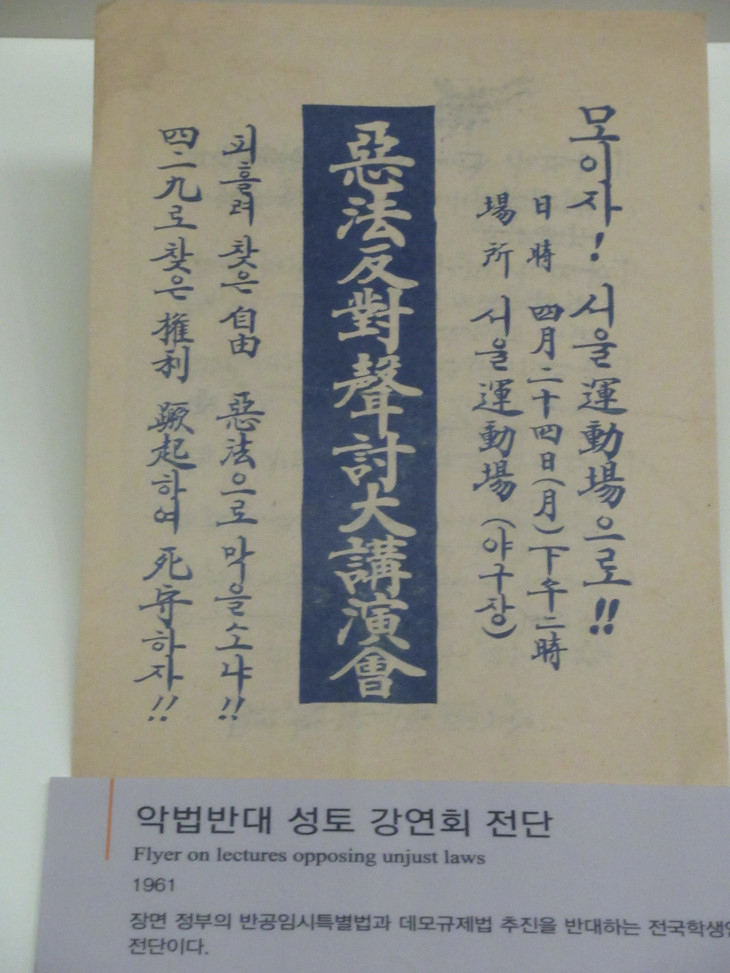 모이자! 서울運動場으로!!
日時 四月二十四日(月)下午二時
場所 서울運動場 (야구장)
惡法反對聲討大講演會
피흘려 찾은 自由 惡法으로 막을소냐!!
四一九로 찾은 權利 蹶起하여 死守하자!!
악법반대 성토 강연회 전단
Flyer on lectures opposing unjust laws
1961
장면 정부의 반공임시특별법과 데모규제법 추진을 반대하는 전국학생
전단이다.